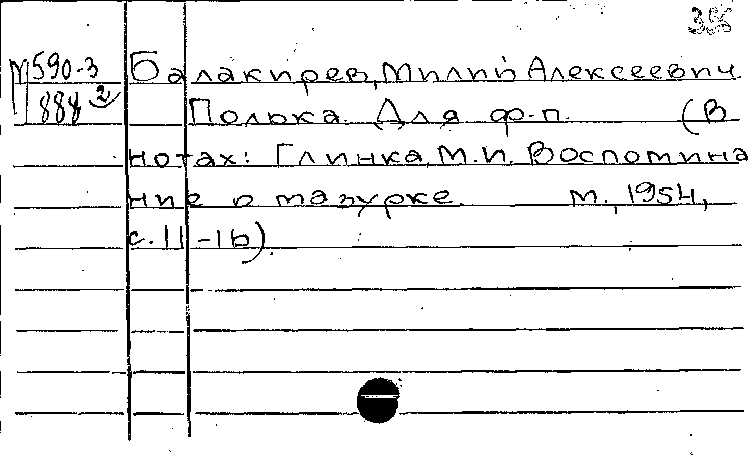 356
М590-3 Балакирев, Милий Алексеевич
888 2 Полька. Для ф-п. (В
нотах: Глинка, М.И. Воспомина
ние о мазурке. М., 1954,
с. 11-16).